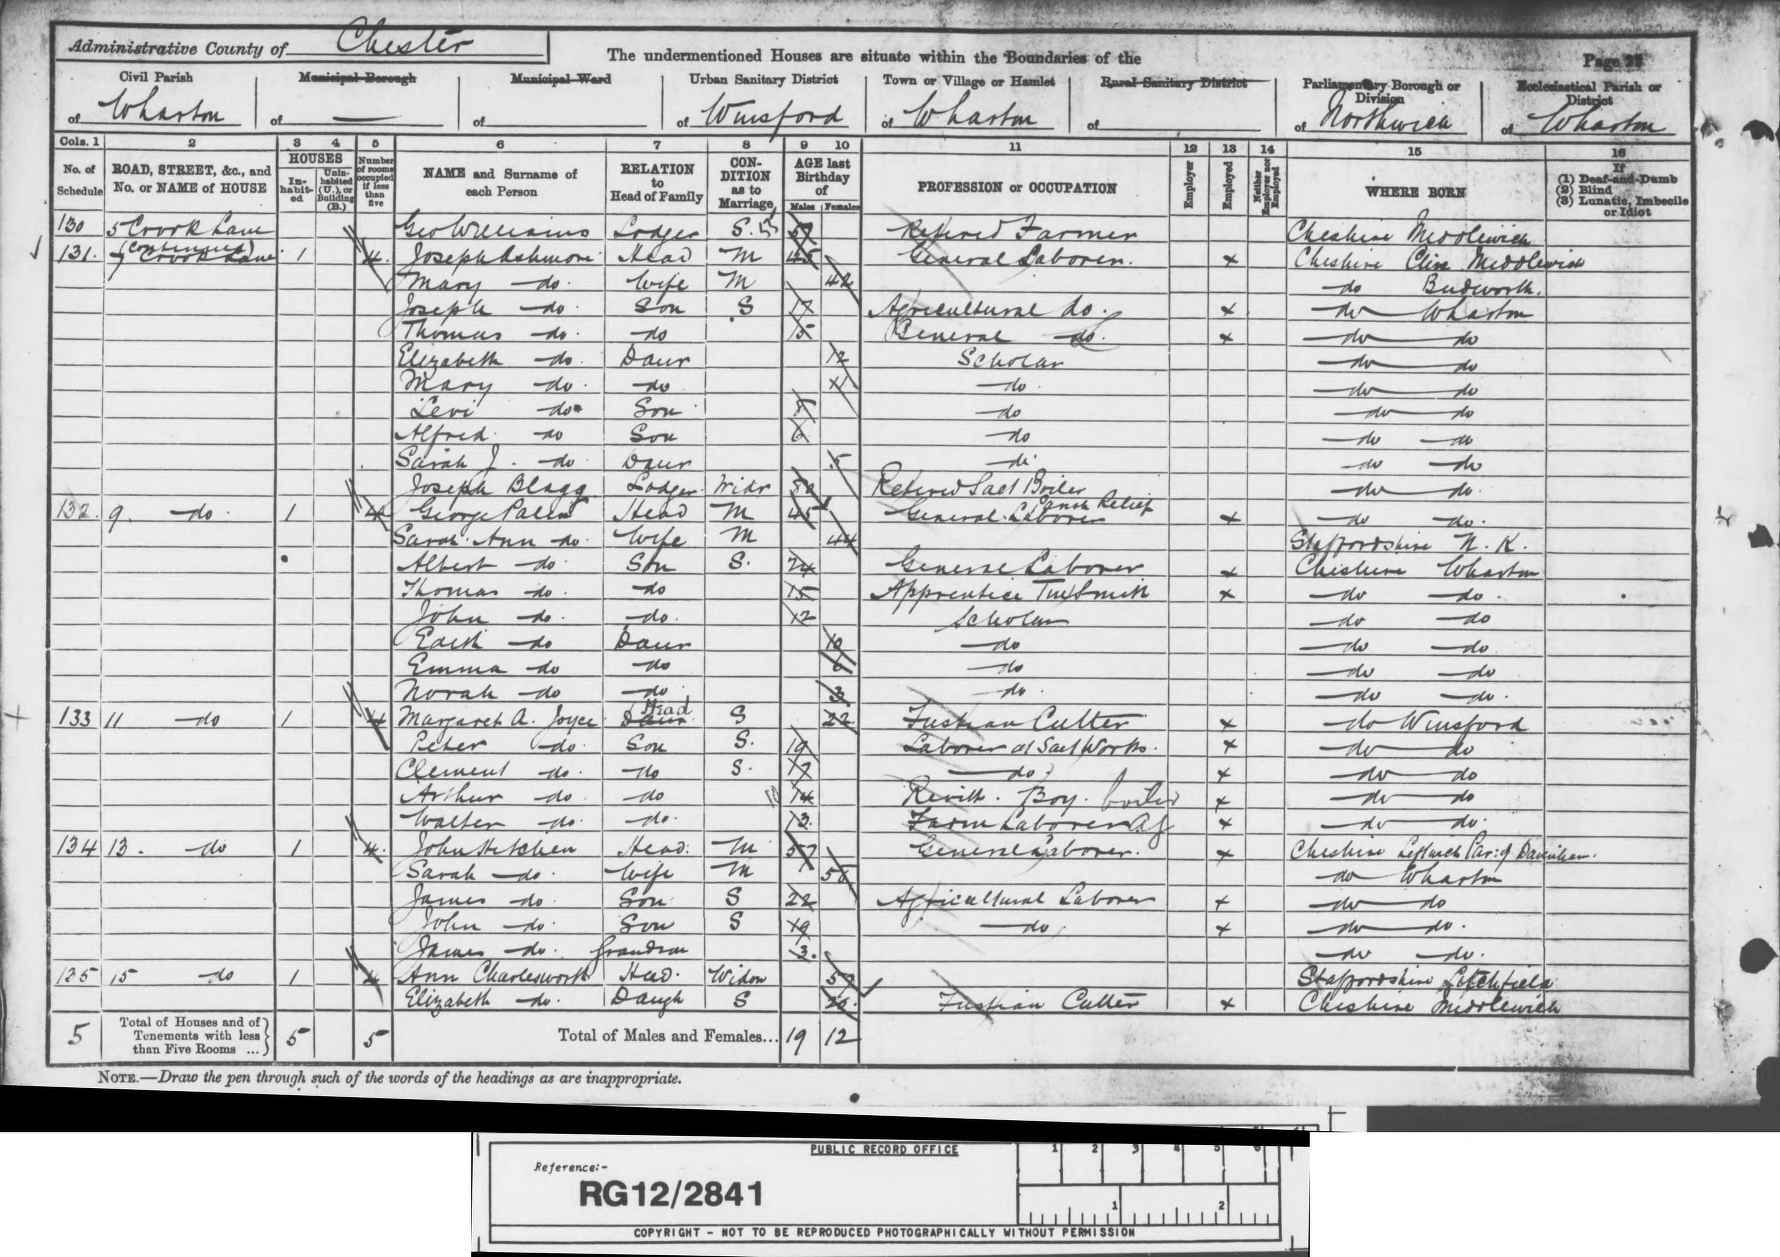 Administrative County of Chester
The undermentioned Houses are situate within the Boundaries of the
Page 23
Civil Parish of Wharton
Municipal Borough of —
Municipal Ward of
Urban Sanitary District of Winsford
Town or Village or Hamlet of Wharton
Rural Sanitary District of
Parliamentary Borough or Division of Northwich
Ecclesiastical Parish or District of Wharton
Cols. 1 2 3 4 5 6 7 8 9 10 11 12 13 14 15 16
No. of Schedule
ROAD, STREET, &c., and No. or NAME of HOUSE
HOUSES
In-habit-ed
Unin-habited (U.), or Building (B.)
Number of rooms occupied if less than five
NAME and Surname of each Person
RELATION to Head of Family
CON-DITION as to Marriage
AGE last Birthday of
Males Females
PROFESSION or OCCUPATION
Employer
Employed
Neither Employer nor Employed
WHERE BORN
If (1) Deaf-and-Dumb (2) Blind (3) Lunatic, Imbecile or Idiot
130 5 Crook Lane Geo Williams Lodger S. Retired Farmer Cheshire Middlewich
(continued)
131. 7 Crook Lane 1 4. Joseph Ashmore Head M 45 General Laborer. x Cheshire Clive Middlewich
Mary do. Wife M 42 do Budworth.
Joseph do. Son S 17 Agricultural do. x do Wharton
Thomas do. do 15 General do. x do do
Elizabeth do. Daur 12 Scholar do do
Mary do. do 11 do. do do
Levi do. Son 8 do do do
Alfred. do Son 6 do do do
Sarah J. do. Daur 5 do. do do
Joseph Blagg Lodger Widr Retired Salt Boiler do do.
Parish Relief
132. 9. do. 1 4 George Palin Head M 45 General Laborer x do do.
Sarah Ann do. Wife M 44 Staffordshire N. K.
Albert do. Son S. 24 General Laborer x Cheshire Wharton
Thomas do. do 15 Apprentice TinSmith x do do.
John do. do. 12 Scholar do do
Edith do Daur 10 do do do.
Emma do do 6 do do do
Norah do do 3 do. do do.
Head
133 11 do 1 4 Margaret A. Joyce Daur S 22 Fustian Cutter x do Winsford
Peter do. Son S. 19 Laborer at Salt Works. x do do
Clement do. do S. 17 do x do do
Arthur do. do 14 Rivitt. Boy. boiler x do do
Walter do. do. 13. Farm Laborer Ag x do do.
134 13. do 1 4. John Hitchen Head. M. 57 General Laborer. x Cheshire Leftwich Par: of Davenham.
Sarah do. Wife M do Wharton
James do. Son S 22 Agricultural Laborer x do do
John do. Son S 19 do x do do.
James do. Grandson 3. do do.
135 15 do 1 4 Ann Charlesworth Head. Widow Staffordshire Litchfield
Elizabeth do. Daugh S Fustian Cutter x Cheshire Middlewich
5 Total of Houses and of Tenements with less than Five Rooms ... 5 5 Total of Males and Females... 19 12
NOTE.—Draw the pen through such of the words of the headings as are inappropriate.
PUBLIC RECORD OFFICE
1 2 3 4 5 6
Reference:-
RG12/2841
1 2
COPYRIGHT - NOT TO BE REPRODUCED PHOTOGRAPHICALLY WITHOUT PERMISSION